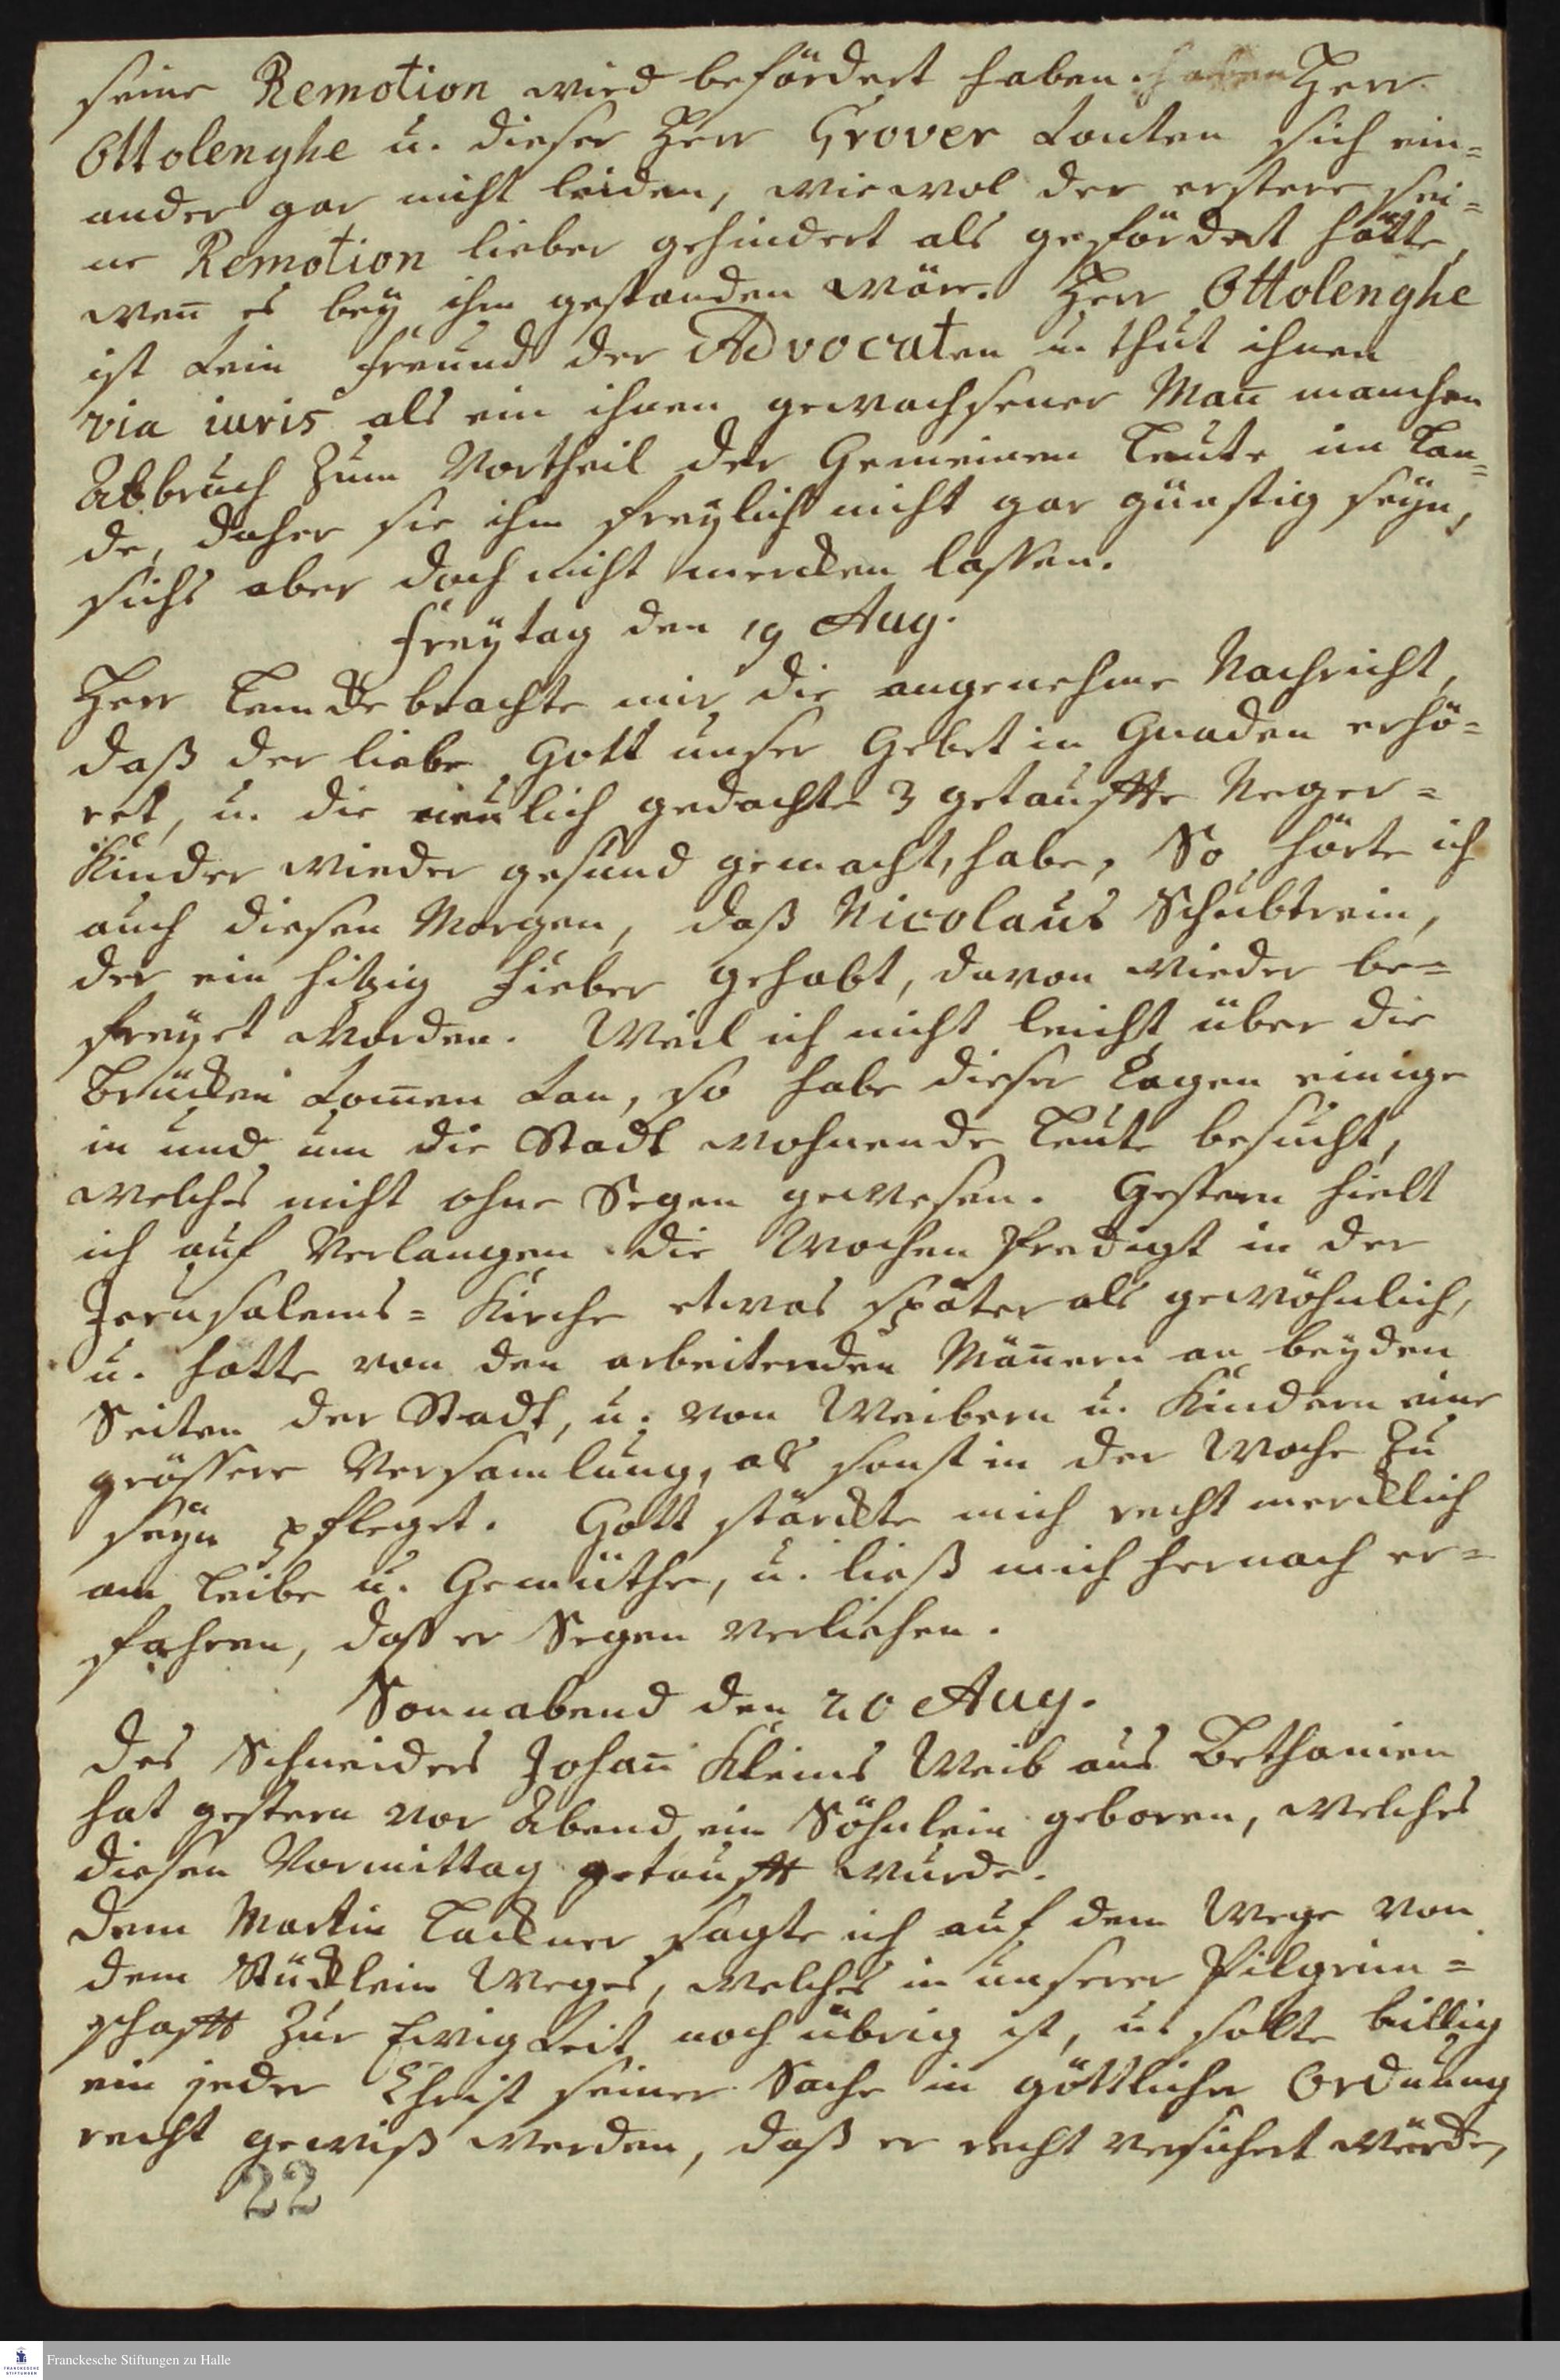 seine Remotion wird befördert haben. Herr
Ottolenghe u. dieser Herr Grover konten sich ein=
ander gar nicht leiden, wiewol der erstere sei=
ne Remotion lieber gehindert als gefördert hätte,
wen̅ es bey ihm gestanden wäre. Herr Ottolenghe
ist kein Freund der Advocaten u. thut ihnen
via iuris als ein ihnen gewachsener Man̅ manchen
Abbruch zum Vortheil der Gemeinen Leute im Lan=
de, daher sie ihm freylich nicht gar günstig seyn,
sichs aber doch nicht mercken lassen.
Freytag den 19 Aug.
Herr Lemcke brachte mir die angenehme Nachricht,
daß der liebe Gott unser Gebet in Gnaden erhö=
ret, u. die neulich gedachte 3 getauffte Neger=
Kinder wieder gesund gemacht, habe. So hörte ich
auch diesen Morgen, daß Nicolaus Schubtrein,
der ein hitzig Fieber gehabt, davon wieder be=
freyet worden. Weil ich nicht leicht über die
Brücken kom̅en kan, so habe dieser Tagen einige
in und um die Stadt wohnende Leute besucht,
welches nicht ohne Segen gewesen. Gestern hielt
ich auf Verlangen die Wochen Predigt in der
Jerusalems= Kirche etwas später als gewöhnlich,
u. hatte von den arbeitenden Män̅ern an beyden
Seiten der Stadt, u. von Weibern u. Kindern eine
grössere Versamlung, als sonst in der Woche zu
seyn pfleget. Gott stärckte mich recht mercklich
am Leibe u. Gemüthe, u. ließ mich hernach er=
fahren, daß er Segen verliehen.
Sonnabend den 20 Aug.
Des Schneiders Johan̅ Kleins Weib aus Bethanien
hat gestern vor Abend ein Söhnlein geboren, welches
diesen Vormittag getaufft wurde.
Dem Martin Lackner sagte ich auf dem Wege von
dem Stücklein Weges, welches in unserer Pilgrim=
schafft zur Ewigkeit noch übrig ist, u. solte billig
ein jeder Christ seiner Sache in göttlicher Ordnung
recht gewiß werden, daß er recht versichert würde,
22
Franckesche Stiftungen zu Halle